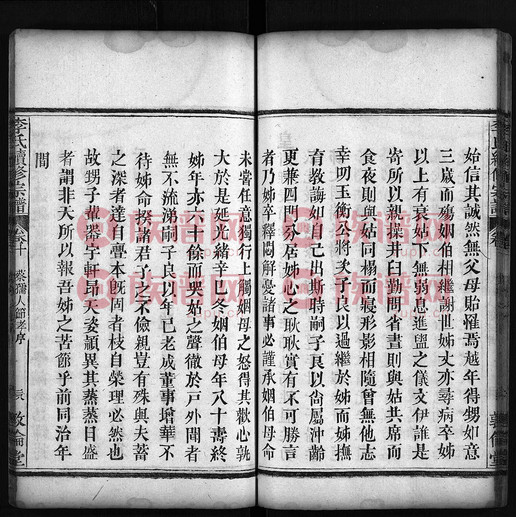 始信其誠然無父母貽罹焉越年得甥如意
三歲而殤姻伯相繼謝世姊丈亦尋病卒姊
以上有衰姑下無弱息進盥之儀文伊誰是
寄所以親操井臼勤問省晝則與姑共席而
食夜則與姑同榻而寢形影相隨曾無他志
幸明玉衡公將次子良以過繼於姊而姊撫
育教誨如自己出斯時嗣子良以尚屬沖齡
更兼四門家居姊心之耿耿實有不可勝言
者乃姊卒釋悶解憂諸事必謹承姻伯母命
未嘗任意獨行上觸姻母之怒得其歡心孰
大於是延光緒辛巳冬姻伯母年八十壽終
姊年亦五十餘而哭姑之聲徹於戶外聞者
無不流涕嗣子良以年已老成董事增華不
待姊命揆諸君子之不儉親豈有殊與夫蓄
之深者達自亹本既固者枝自榮理必然也
故甥子輩器宇軒昂天姿穎異其蒸蒸日盛
者謂非天所以報吾姊之苦節乎前同治年
間
李氏續修宗譜
卷十
敦倫堂